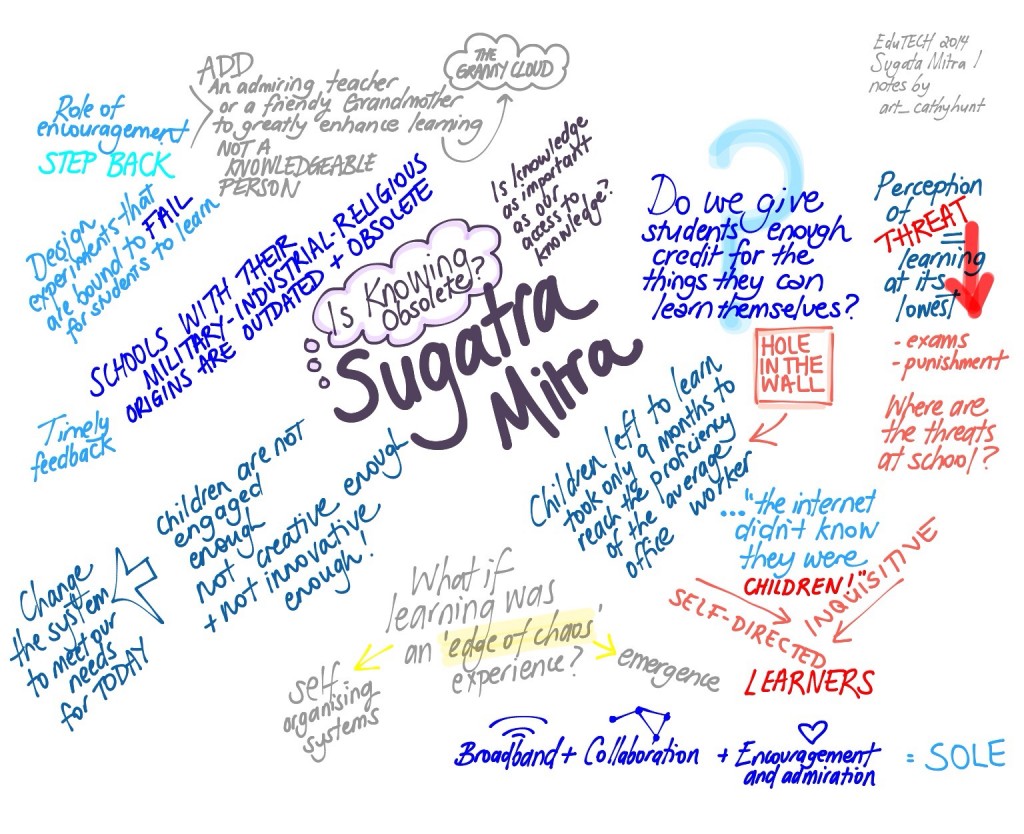 EduTECH 2014
Sugata Mitra /
notes by
art_cathyhunt
THE
GRANNY CLOUD
ADD
An admiring teacher
or a friendly Grandmother
to greatly enhance learning
NOT A
KNOWLEDGEABLE
PERSON
Role of
encouragement
STEP BACK
Design
experiments that
are bound to FAIL
for students to learn
SCHOOLS WITH THEIR
MILITARY-INDUSTRIAL-RELIGIOUS
ORIGINS ARE OUTDATED + OBSOLETE
Is knowledge
as important
as our
access to
knowledge?
Is Knowing
Obsolete?
Sugatra
Mitra
?
Do we give
students enough
credit for the
things they can
learn themselves?
Perception
of
THREAT =
learning
at its
lowest
- exams
- punishment
Where are
the threats
at school?
HOLE
IN THE
WALL
Children left to learn
took only 9 months to
reach the proficiency
of the average
office worker
..."the internet
didn't know
they were
CHILDREN!"
SELF-DIRECTED
INQUISITIVE
LEARNERS
Timely
feedback
children are not
engaged
enough
not creative enough
+ not innovative
enough!
Change
the system
to meet our
needs
for TODAY
What if
learning was
an 'edge of chaos'
experience?
self-
organising
systems
emergence
Broadband + Collaboration + Encouragement
and admiration
= SOLE